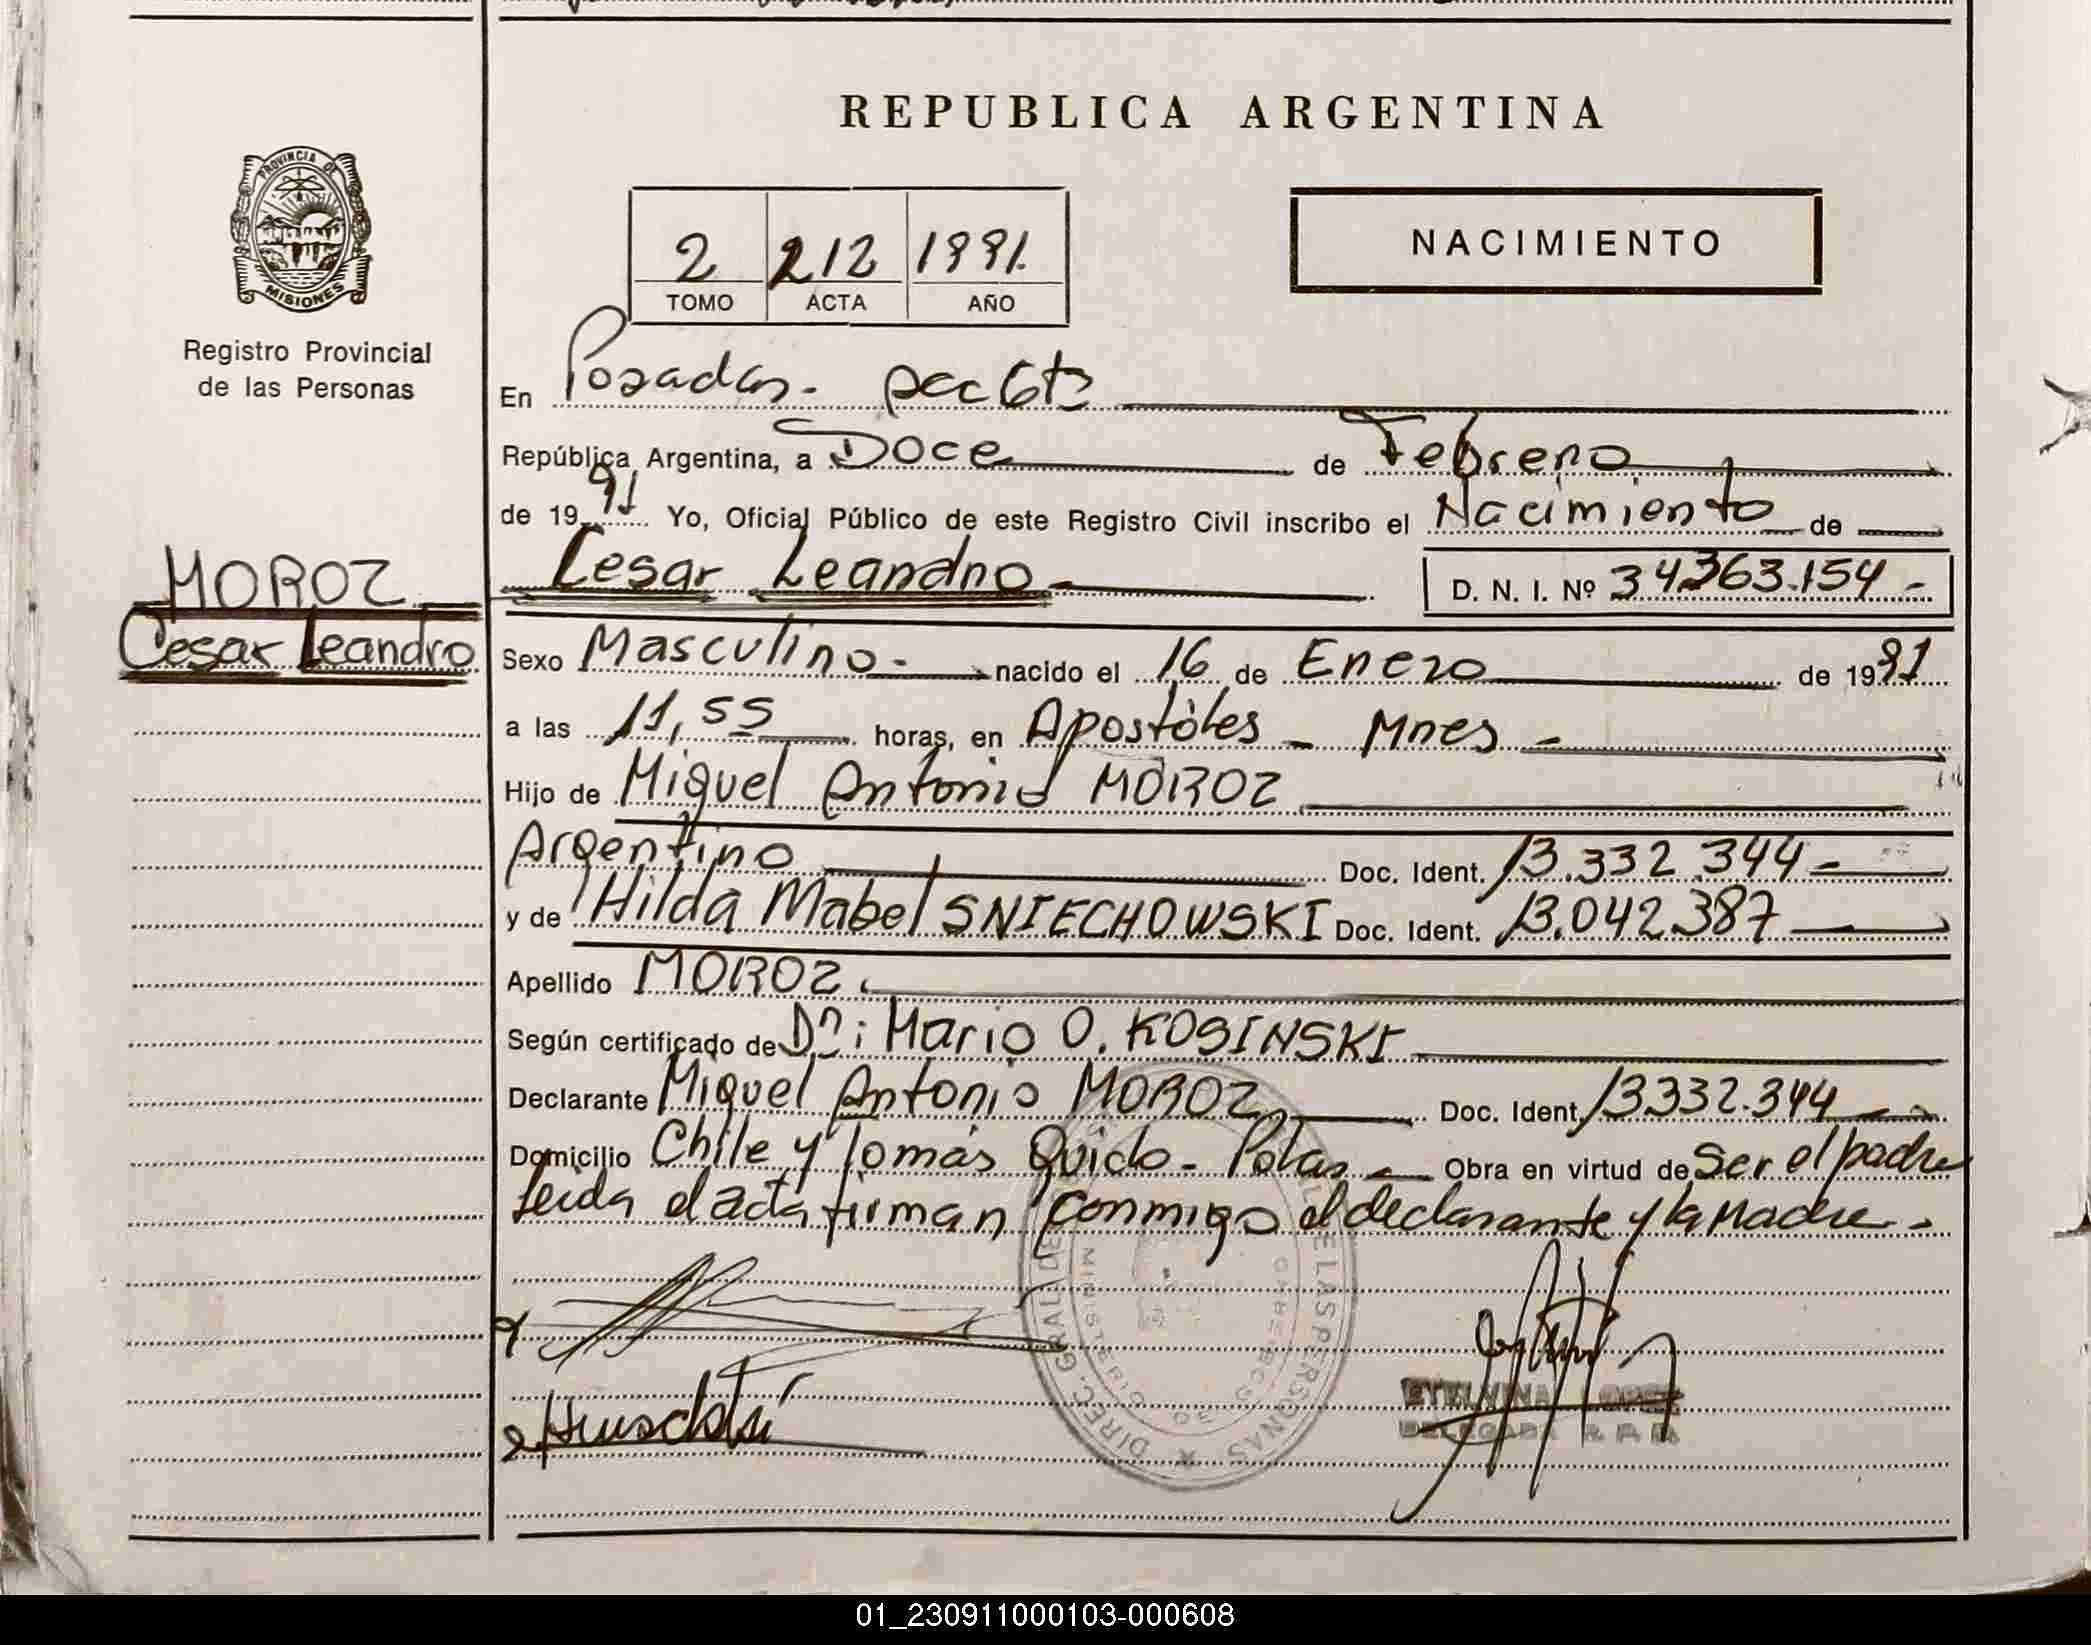 REPUBLICA ARGENTINA
PROVINCIA DE
MISIONES
Registro Provincial
de las Personas
2 212 1991.
TOMO ACTA AÑO
NACIMIENTO
En Posadas. sec 6ta
República Argentina, a Doce de Febrero
de 1991 Yo, Oficial Público de este Registro Civil inscribo el Nacimiento de
Cesar Leandro D. N. I. Nº 34363.154 -
MOROZ
Cesar Leandro
Sexo Masculino.- nacido el 16 de Enero de 1991
a las 11,55 horas, en Apostòles - Mnes -
Hijo de Miguel Antonio MOROZ
Argentino Doc. Ident. 13.332.344 -
y de Hilda Mabel SNIECHOWSKI Doc. Ident. 13.042.387
Apellido MOROZ.
Según certificado de Dn: Mario O. KOSINSKI
Declarante Miguel Antonio MOROZ Doc. Ident. 13332.344
Domicilio Chile y Tomás Guido - Pdas - Obra en virtud de Ser el padre
Leida el acta firman conmigo el declarante y la Madre.-
DIREC. GRAL DE LAS PERSONAS
MINISTERIO DE
ETELVINA LOPEZ
DELEGADA
01_230911000103-000608